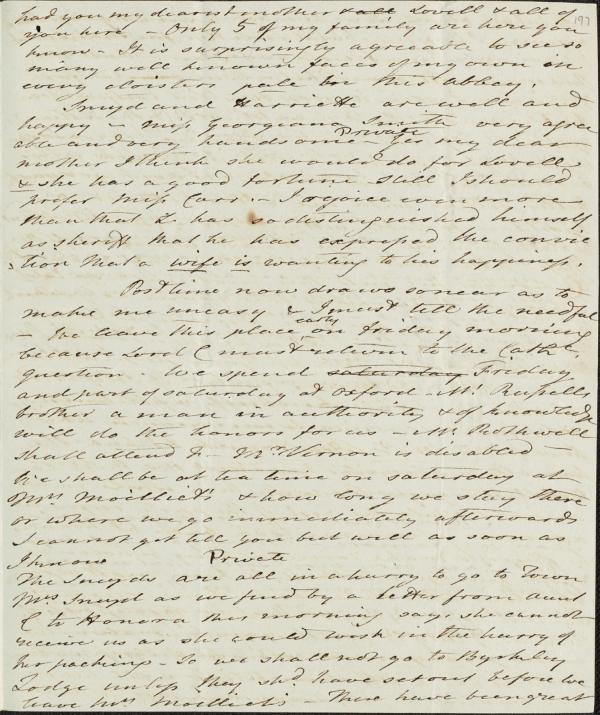 197
had you my dearest mother & all Lovell & all of
you here - Only 5 of my family are here you
know - It is surprisingly agreeable to see so
many well known faces of my own in
every cloisters pale in this abbey.
Sneyd and Harriette are well and
happy - Miss Georgiana Smith very agree
able and very handsome - Yes my dear
Private
mother I think she would do for Lovell
& she has a good fortune still I should
prefer Miss Carr - I rejoice even more
than that L. has so distinguished himself
as sheriff that he has expressed the convic
tion that a wife is wanting to his happiness.
Post time now draws so near as to
make me uneasy & I must tell the needful
- We leave this place early on Friday morning
because Lord C must return to the Cath.
question - We spend saturday Friday
and part of Saturday at Oxford - Mr. Russells
brother a man in authority & of knowledge
will do the honors for us - Mr Rothwell
shall attend to - Mr Vernon is disabled
We shall be at tea time on saturday at
Mrs Moilliet's & how long we stay there
or where we go immediately afterwards
I cannot yet tell you but will as soon as
I know
Private
The Sneyds are all in a hurry to go to Town
Mrs Sneyd as we find by a letter from aunt
C to Honora this morning says she cannot
receive us as she could wish in the hurry of
her packing - So we shall not go to Byrkley
Lodge unless they shd. have set out before we
leave Mrs Moilliet's - There have been great